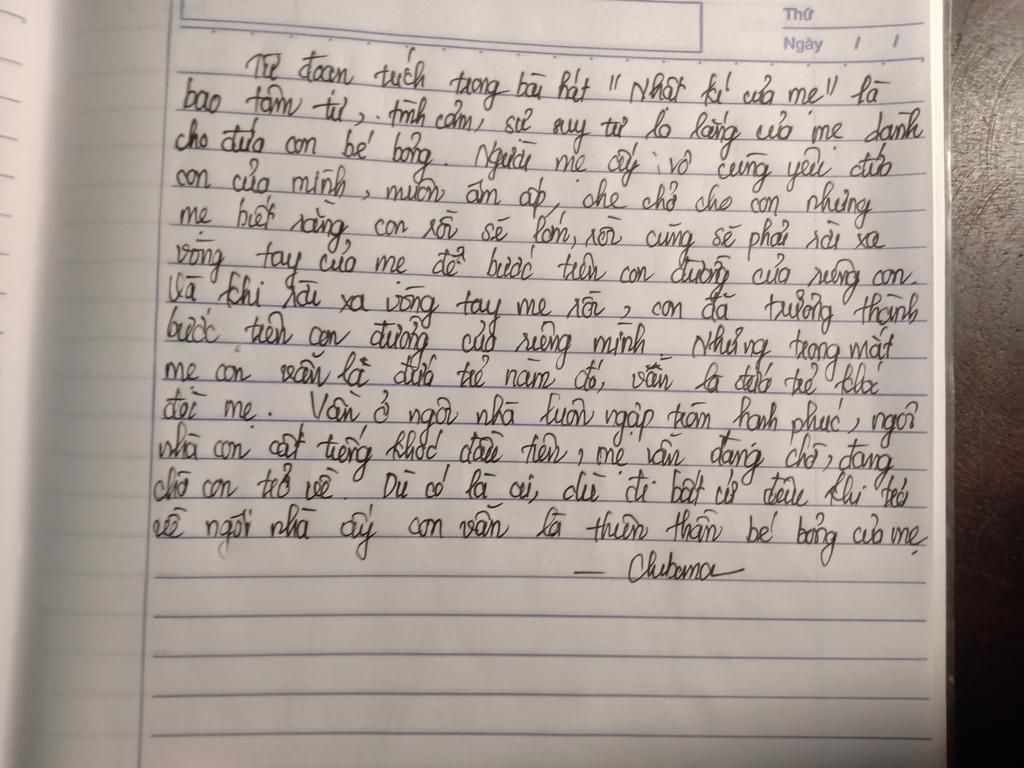 Thứ
Ngày / /
Từ đoạn trích trong bài hát "Nhật kí của mẹ" là
bao tâm tư, tình cảm, sự suy tư lo lắng của mẹ dành
cho đứa con bé bỏng. Người mẹ ấy, vô cùng yêu đứa
con của mình, muốn ấm áp, che chở cho con nhưng
mẹ biết rằng, con rồi sẽ lớn, rồi cũng sẽ phải rời xa
vòng tay của mẹ để bước trên con đường của riêng con.
Và khi rời xa vòng tay mẹ rồi, con đã trưởng thành
bước trên con đường của riêng mình Nhưng trong mắt
mẹ con vẫn là đứa trẻ năm đó, vẫn là đứa trẻ khóc
đòi mẹ. Vẫn ở ngôi nhà luôn ngập tràn hạnh phúc, ngôi
nhà con cất tiếng khóc đầu tiên, mẹ vẫn đang chờ, đang
chờ con trở về. Dù có là ai, dù đi bất cứ đâu khi trở
về ngôi nhà ấy con vẫn là thiên thần bé bỏng của mẹ